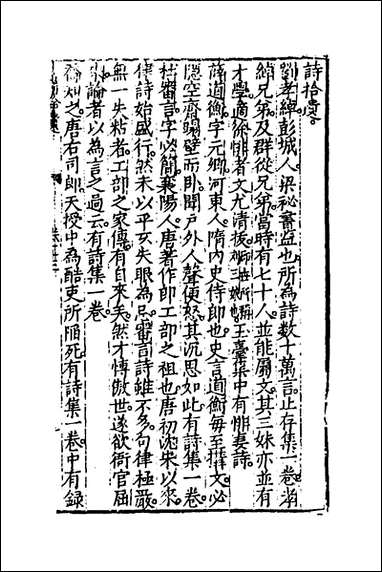 詩拾遺。
劉孝綽彭城人。梁祕書監也。所為詩數十萬言。止存集一卷。
綽兄弟及群從兄弟。當時有七十人。並能屬文。其三妹亦並有
才學適徐悱者文尤清拔。三娘玉臺集中有悱妻詩。
薛道衡字元卿河東人。隋內史侍郎也。史言道衡每至搆文必
隱空齋蹋壁而臥聞戶外人聲便怒其沉思如此有詩集一卷
杜審言字必簡襄陽人。唐著作郎工部之祖也。唐初沈宋以來
律詩始盛行。然未以平仄失眼為忌。審言詩雖不多。句律極嚴。
無一失粘者。工部之家傳有自來矣。然才愽傲世。遂欲衙官屈
論者以為言之過云。有詩集一卷。
喬知之唐右司郎。天授中為酷吏所陷死有詩集一卷中有録